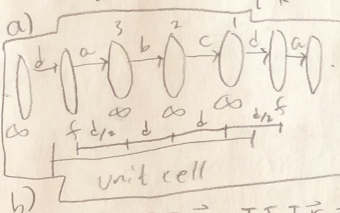 a)
3 2 1
d a b c d a
∞ f ∞ ∞ ∞ f
d/2 d d d/2
unit cell
b)